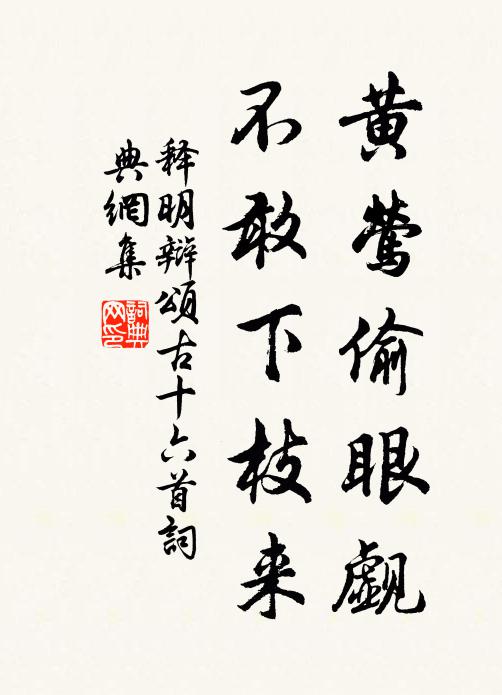 黄鶯偷眼覷
不敢下枝来
释明辩頌古十六首詞
典網集
詞典
网印